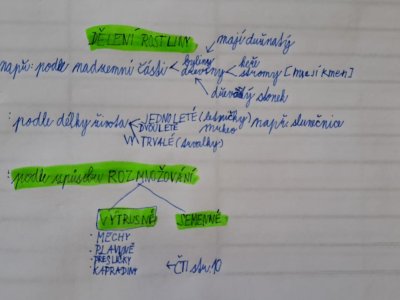 DĚLENÍ ROSTLINY
mají dužnatý
např: podle nadzemní části byliny
dřeviny keře
stromy [mají kmen]
dřevnatý stonek
: podle délky života JEDNOLETÉ (letničky) např: slunečnice
DVOULETÉ
VYTRVALÉ (trvalky)
: podle způsobu ROZMNOŽOVÁNÍ
VÝTRUSNÉ SEMENNÉ
• MECHY
• PLAVUNĚ
• PŘESLIČKY
• KAPRADINY ČTI str. 10